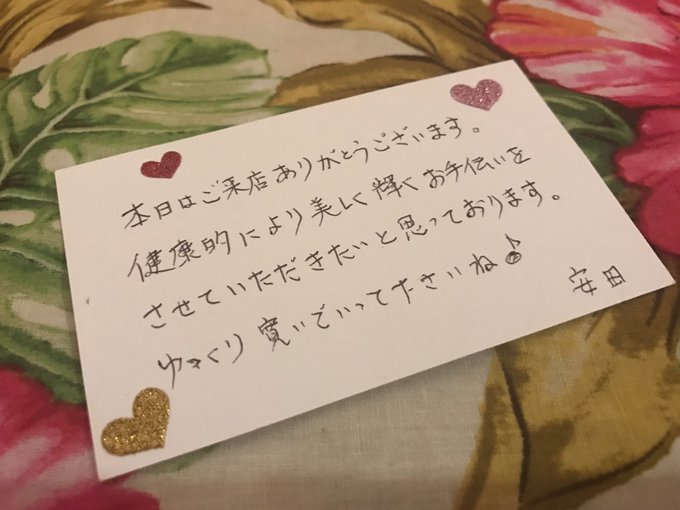 本日はご来店ありがとうございます。
健康的により美しく輝くお手伝いを
させていただきたいと思っております。
ゆっくり寛いでいってださいね♪
安田